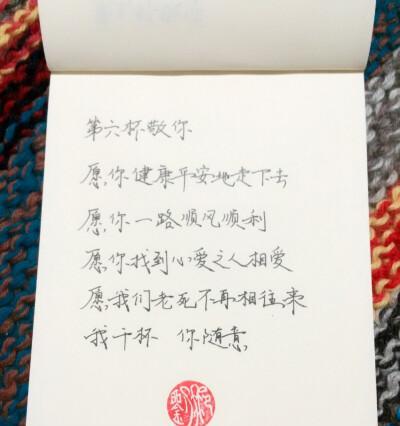 第六杯敬你
愿你健康平安地走下去
愿你一路顺风顺利
愿你找到心爱之人相爱
愿我们老死不再相往来
我干杯 你随意